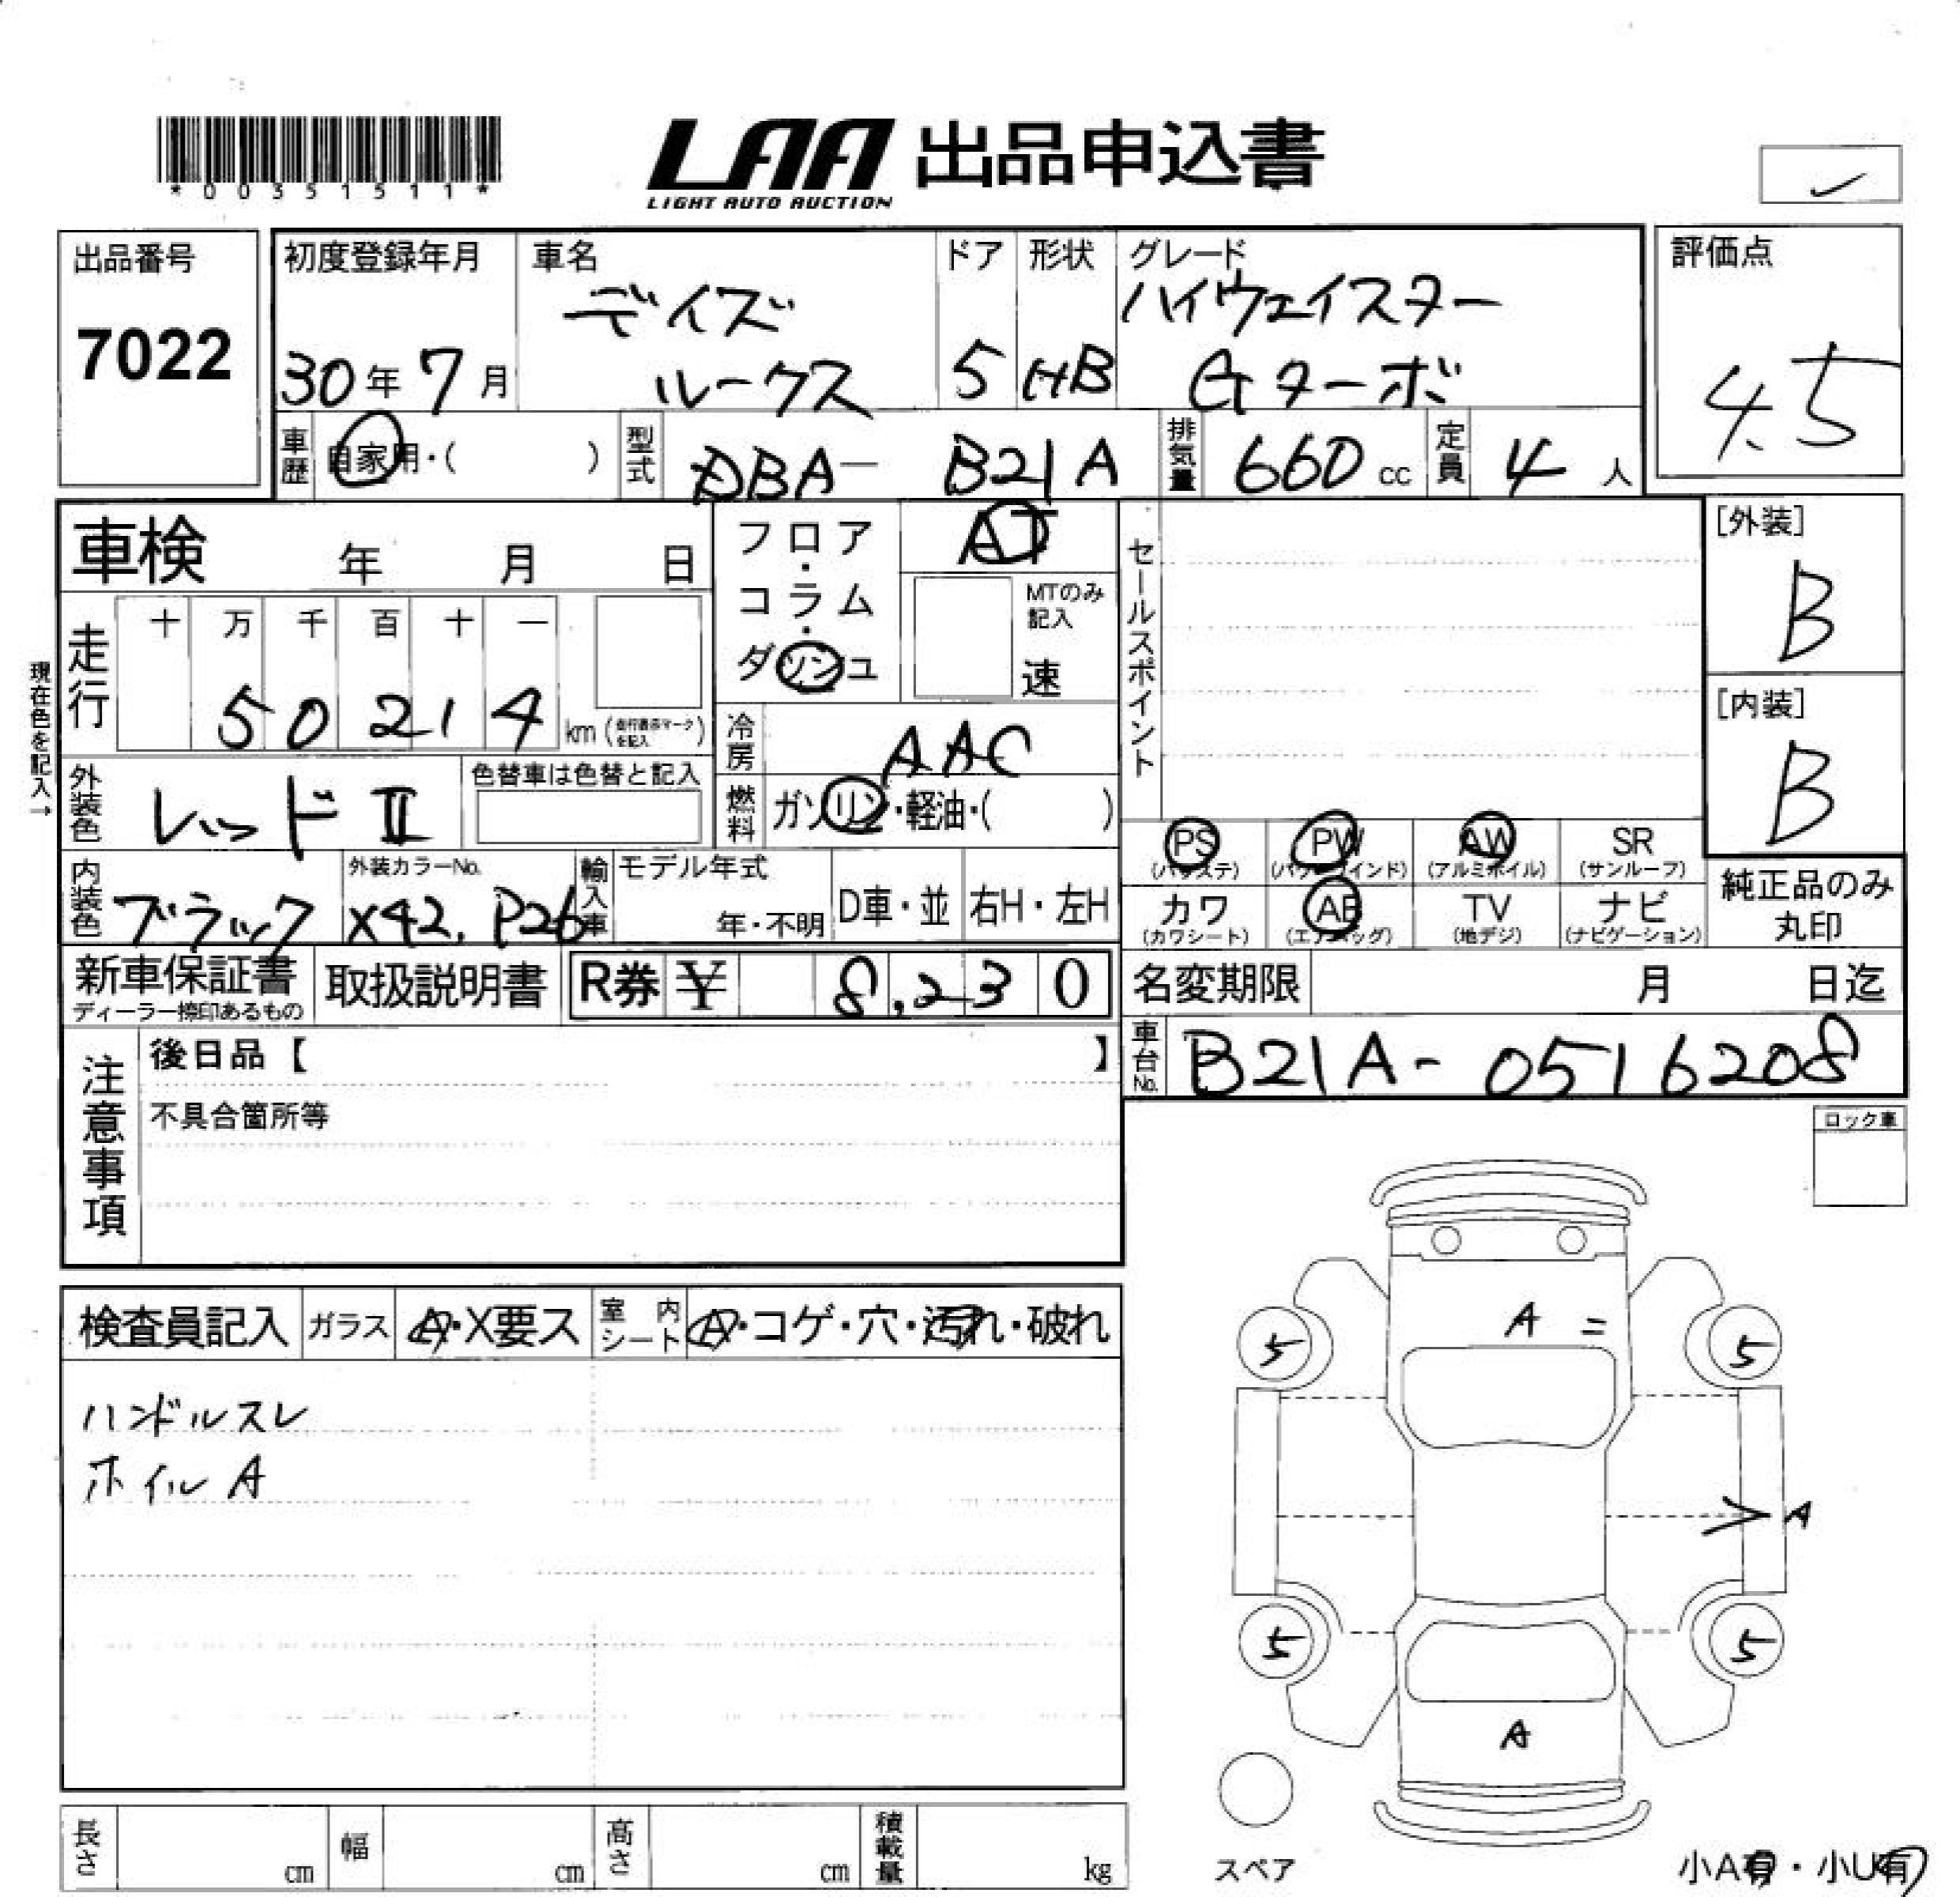 *00351511*
LAA 出品申込書
LIGHT AUTO AUCTION
出品番号
7022
初度登録年月
30年7月
車名
デイズ
ルークス
ドア
5
形状
HB
グレード
ハイウェイスター
Gターボ
評価点
4.5
車歴
自家用・( )
型式
DBA- B21A
排気量
660 cc
定員
4 人
車検 年 月 日
フロア・コラム・ダッシュ
AT
MTのみ
記入
速
セールスポイント
[外装]
B
[内装]
B
現在色を記入→
走行
十 万 千 百 十 一
5 0 2 1 4
km (走行表示マークを記入)
冷房
AAC
外装色
レッドⅡ
色替車は色替と記入
燃料
ガソリン・軽油・( )
PS
(パワステ)
PW
(パワーウインド)
AW
(アルミホイル)
SR
(サンルーフ)
内装色
ブラック
外装カラーNo.
X42, P26
輸入車
モデル年式
年・不明
D車・並
右H・左H
カワ
(カワシート)
AB
(エアバッグ)
TV
(地デジ)
ナビ
(ナビゲーション)
純正品のみ
丸印
新車保証書
ディーラー捺印あるもの
取扱説明書
R券 ¥ 8,230
名変期限 月 日迄
車台No.
B21A-0516208
注意事項
後日品【 】
不具合箇所等
ロック車
検査員記入
ガラス
A・X要ス
室内
シート
A・コゲ・穴・汚れ・破れ
ハンドルスレ
ホイルA
A =
5
5
A
5
5
A
スペア
小A有・小U有
長さ cm
幅 cm
高さ cm
積載量 kg